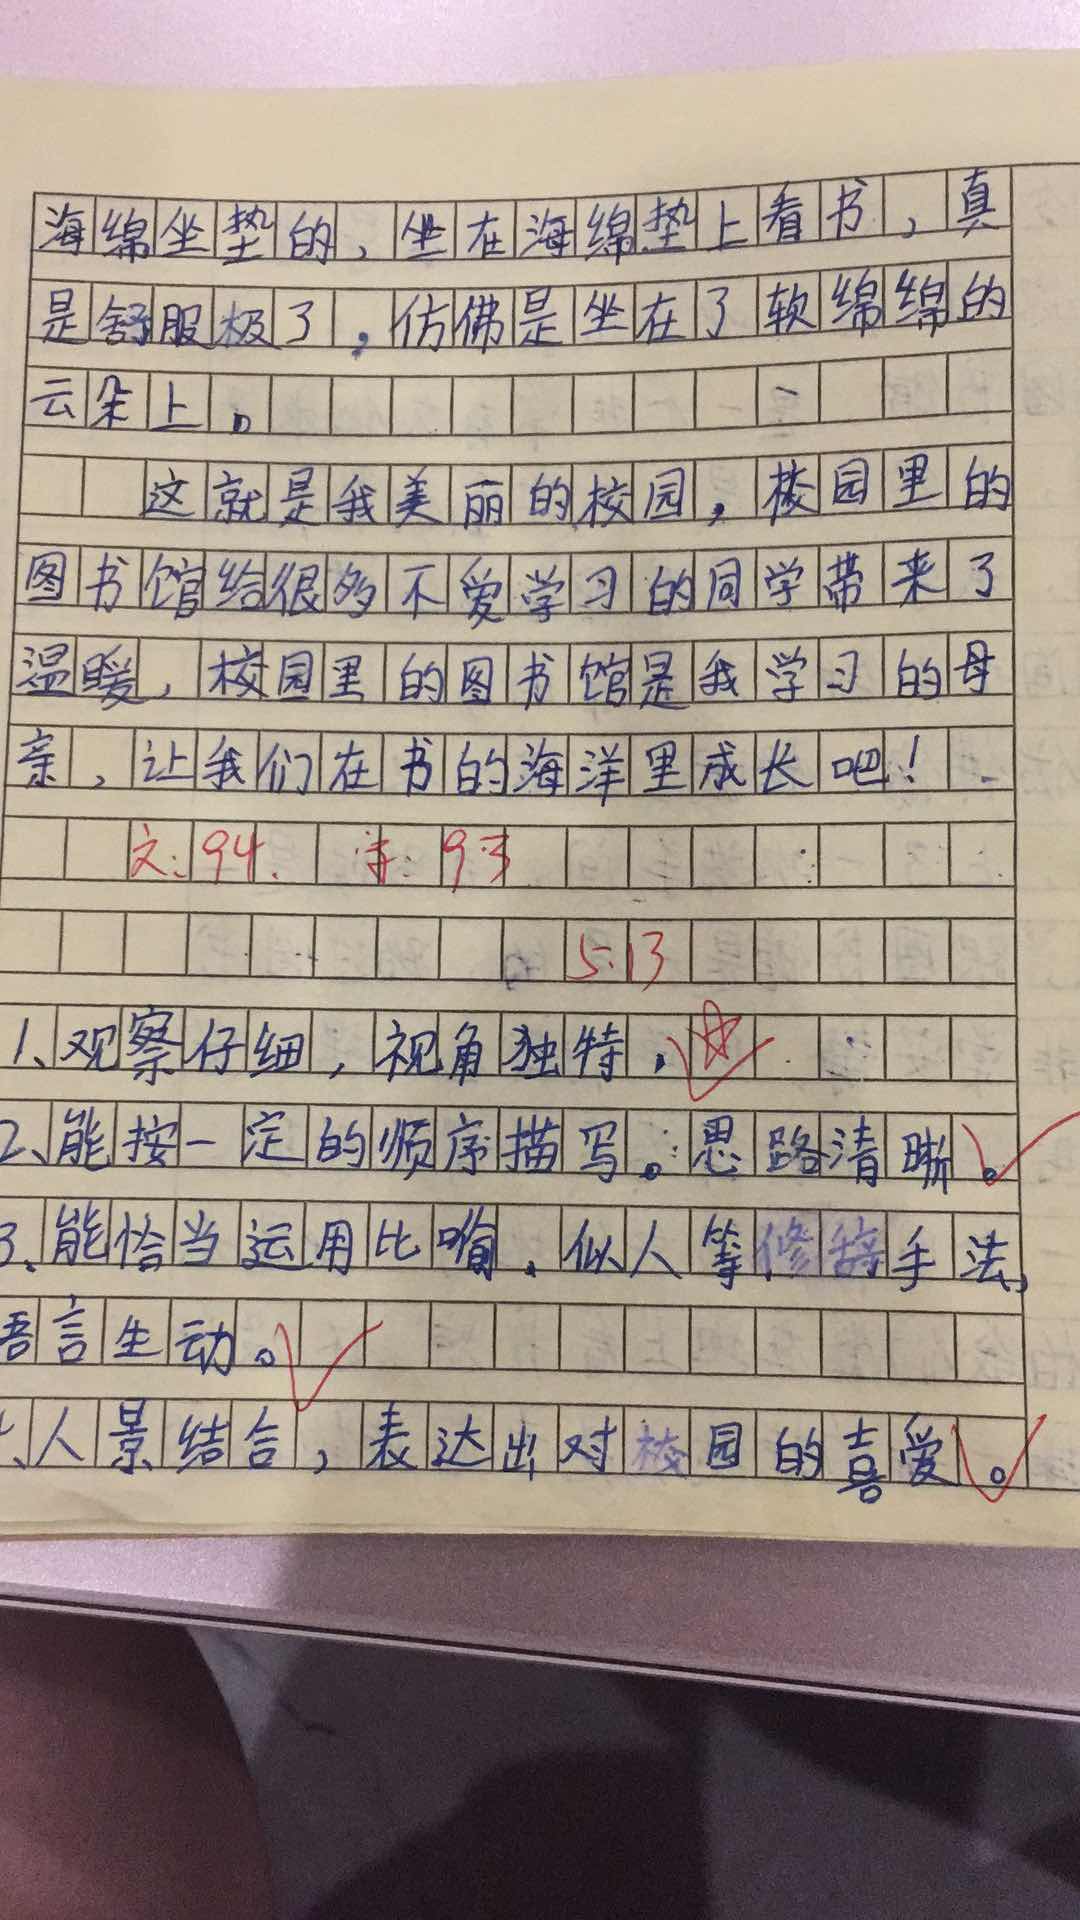 海绵坐垫的，坐在海绵垫上看书，真
是舒服极了，仿佛是坐在了软绵绵的
云朵上。
这就是我美丽的校园，校园里的
图书馆给很多不爱学习的同学带来了
温暖，校园里的图书馆是我学习的母
亲，让我们在书的海洋里成长吧！
文：94. 字：93
5.13
1、观察仔细，视角独特。
2、能按一定的顺序描写。思路清晰。
3、能恰当运用比喻、似人等修辞手法，
语言生动。
人景结合，表达出对校园的喜爱。